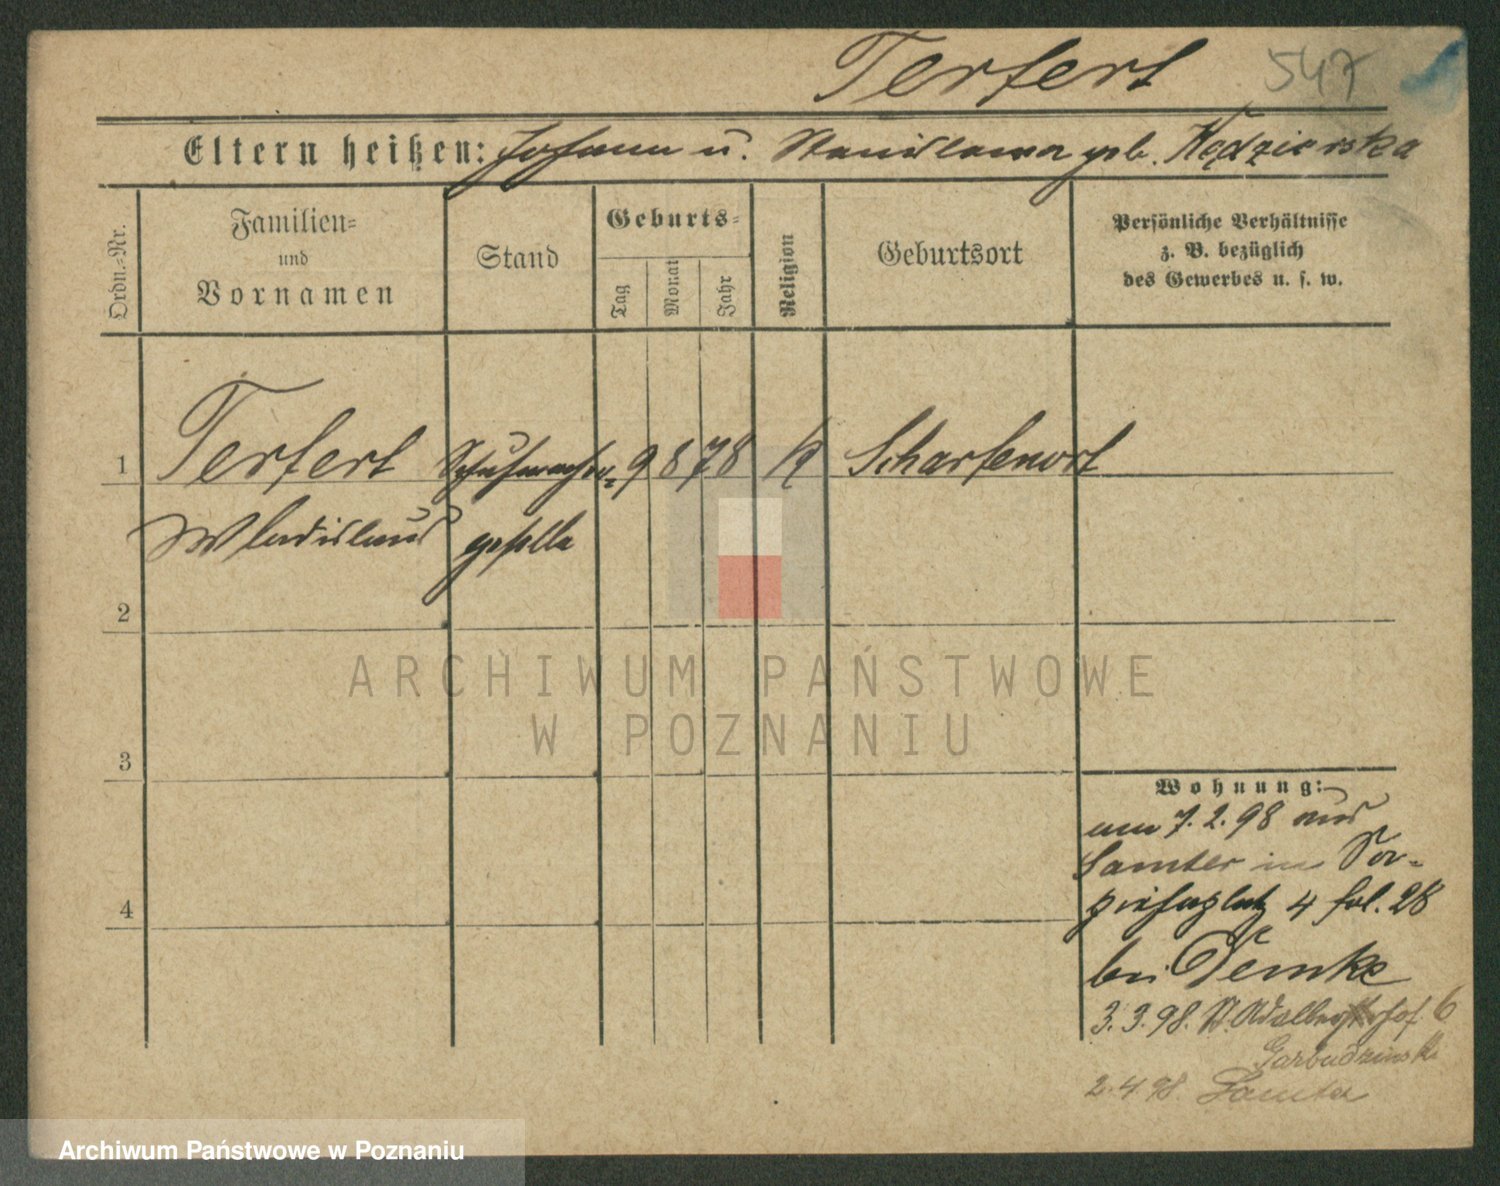 Terfert 547
Eltern heißen: Johann u. Stanislawa geb. Kędzierska
Ordn.-Nr.
Familien-
und
Vornamen
Stand
Geburts-
Tag
Monat
Jahr
Religion
Geburtsort
Persönliche Verhältnisse
z. B. bezüglich
des Gewerbes u. s. w.
1 Terfert Schuhmacher- 9 8 78 k Scharfenort
Wladislaus geselle
2
3
4
ARCHIWUM PAŃSTWOWE
W POZNANIU
Wohnung:
am 7. 2. 98 aus
Samter in Sa-
piehaplatz 4 fol. 28
bei Demke
3. 3. 98. St. Adalbertshof. 6
2. 4. 98. Samter
Archiwum Państwowe w Poznaniu